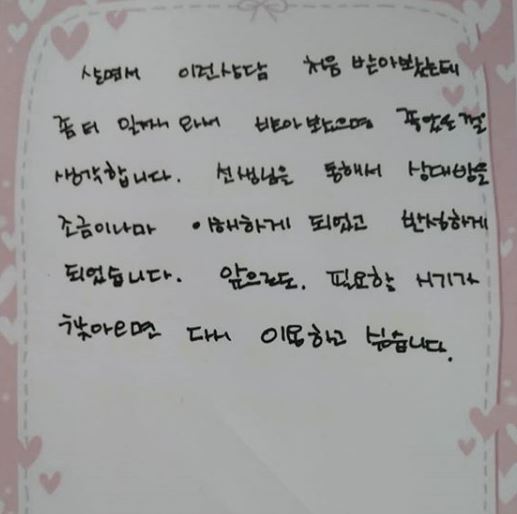 살면서 이런상담 처음 받아보았는데
좀 더 일찍 와서 받아 보았으면 좋았을 껄
생각합니다. 선생님을 통해서 상대방을
조금이나마 이해하게 되었고 반성하게
되었습니다. 앞으로도. 필요할 시기가
찾아오면 다시 이용하고 싶습니다.